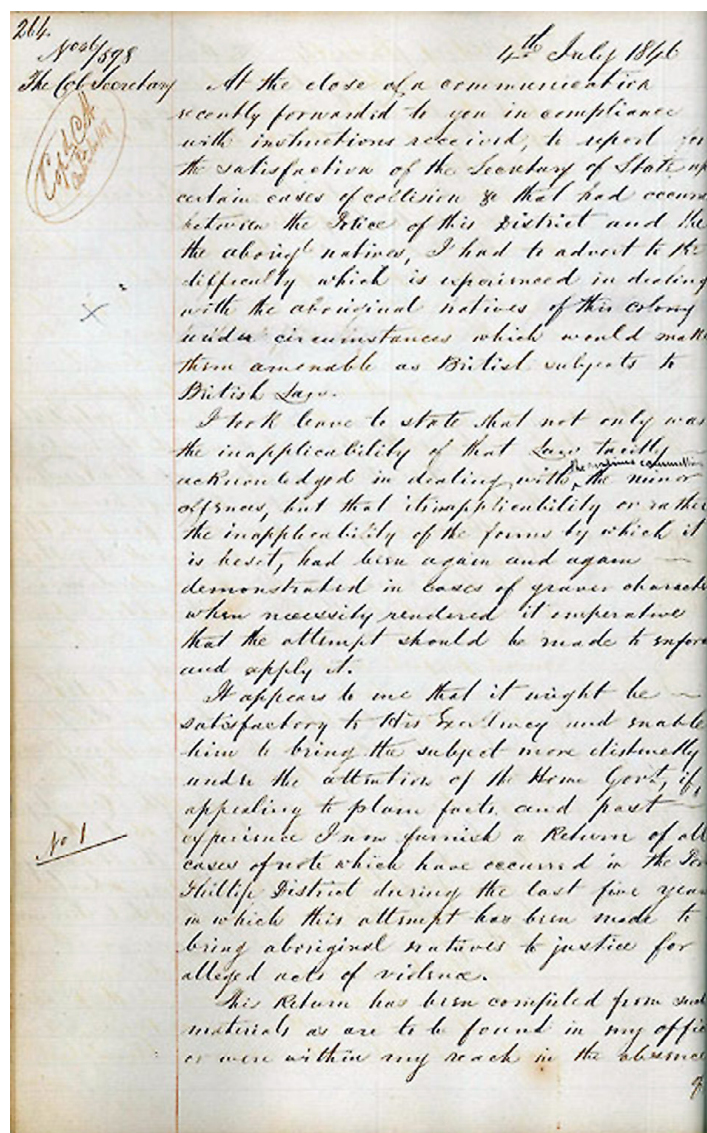 264.
No 46/898
4th July 1846
The Col Secretary
At the close of a communication
recently forwarded to you in compliance
with instructions received, to report for
the satisfaction of the Secretary of State up
certain cases of collision &c that had occurr
between the Police of this District and the
the aborigl natives, I had to advert to the
difficulty which is experienced in dealing
with the aboriginal natives of this colony
under circumstances which would make
them amenable as British subjects to
British Law.
I took leave to state that not only was
the inapplicability of that Law tacitly
acknowledged in dealing with the minor
offences, but that its inapplicability or rather
the inapplicability of the forms by which it
is beset, had been again and again
demonstrated in cases of graver characte
when necessity rendered it imperative
that the attempt should be made to enforc
and apply it.
It appears to me that it might be
satisfactory to His Excellency and enable
him to bring the subject more distinctly
under the attention of the Home Govt, if,
appealing to plain facts and past
experience I now furnish a Return of all
No 1
cases of note which have occurred in the Por
Phillip District during the last five year
in which this attempt has been made to
bring aboriginal natives to justice for
alleged acts of violence.
This Return has been compiled from such
materials as are to be found in my offic
or were within my reach in the absence
of